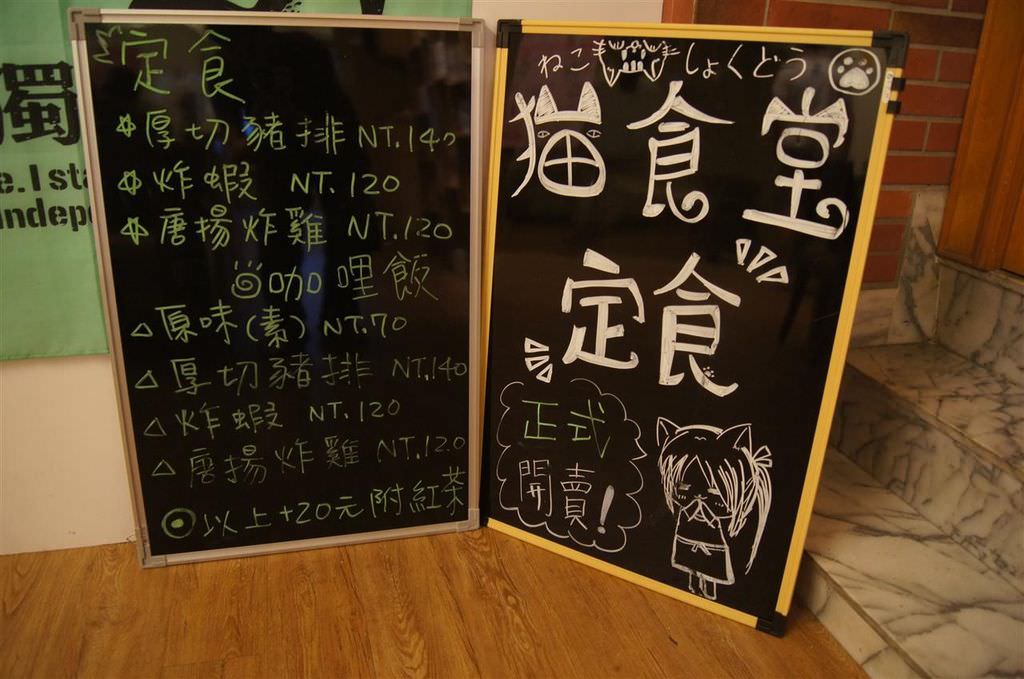 獨
e. I sta
indepe
定食
厚切豬排 NT.140
炸蝦 NT.120
唐揚炸雞 NT.120
咖哩飯
原味(素) NT.70
厚切豬排 NT.140
炸蝦 NT.120
唐揚炸雞 NT.120
以上+20元附紅茶
ねこ しょくどう
猫食堂
定食
正式
開賣!